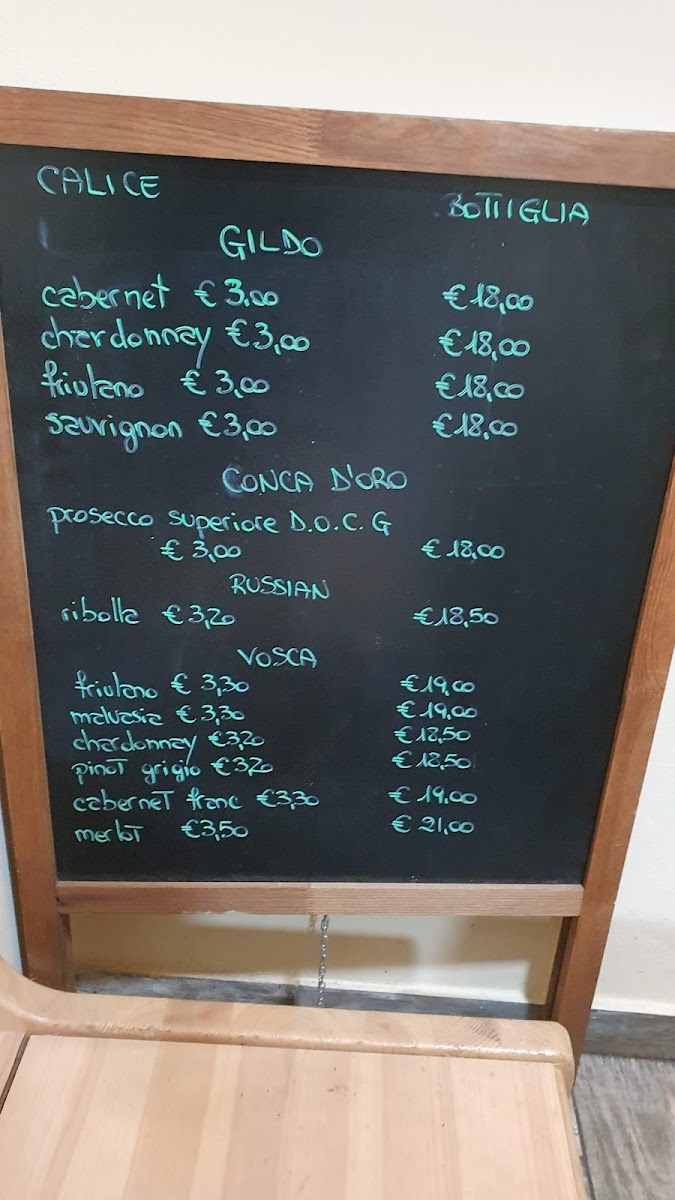 CALICE BOTTIGLIA
GILDO
cabernet € 3.00 € 18,00
chardonnay € 3,00 € 18,00
friulano € 3,00 € 18,00
sauvignon € 3,00 € 18,00
CONCA D'ORO
prosecco superiore D.O.C.G
€ 3,00 € 18,00
RUSSIAN
ribolla € 3,20 € 18,50
VOSCA
friulano € 3,30 € 19,00
malvasia € 3,30 € 19,00
chardonnay € 3,20 € 18,50
pinot grigio € 3,20 € 18,50
cabernet franc € 3,30 € 19,00
merlot € 3,50 € 21,00